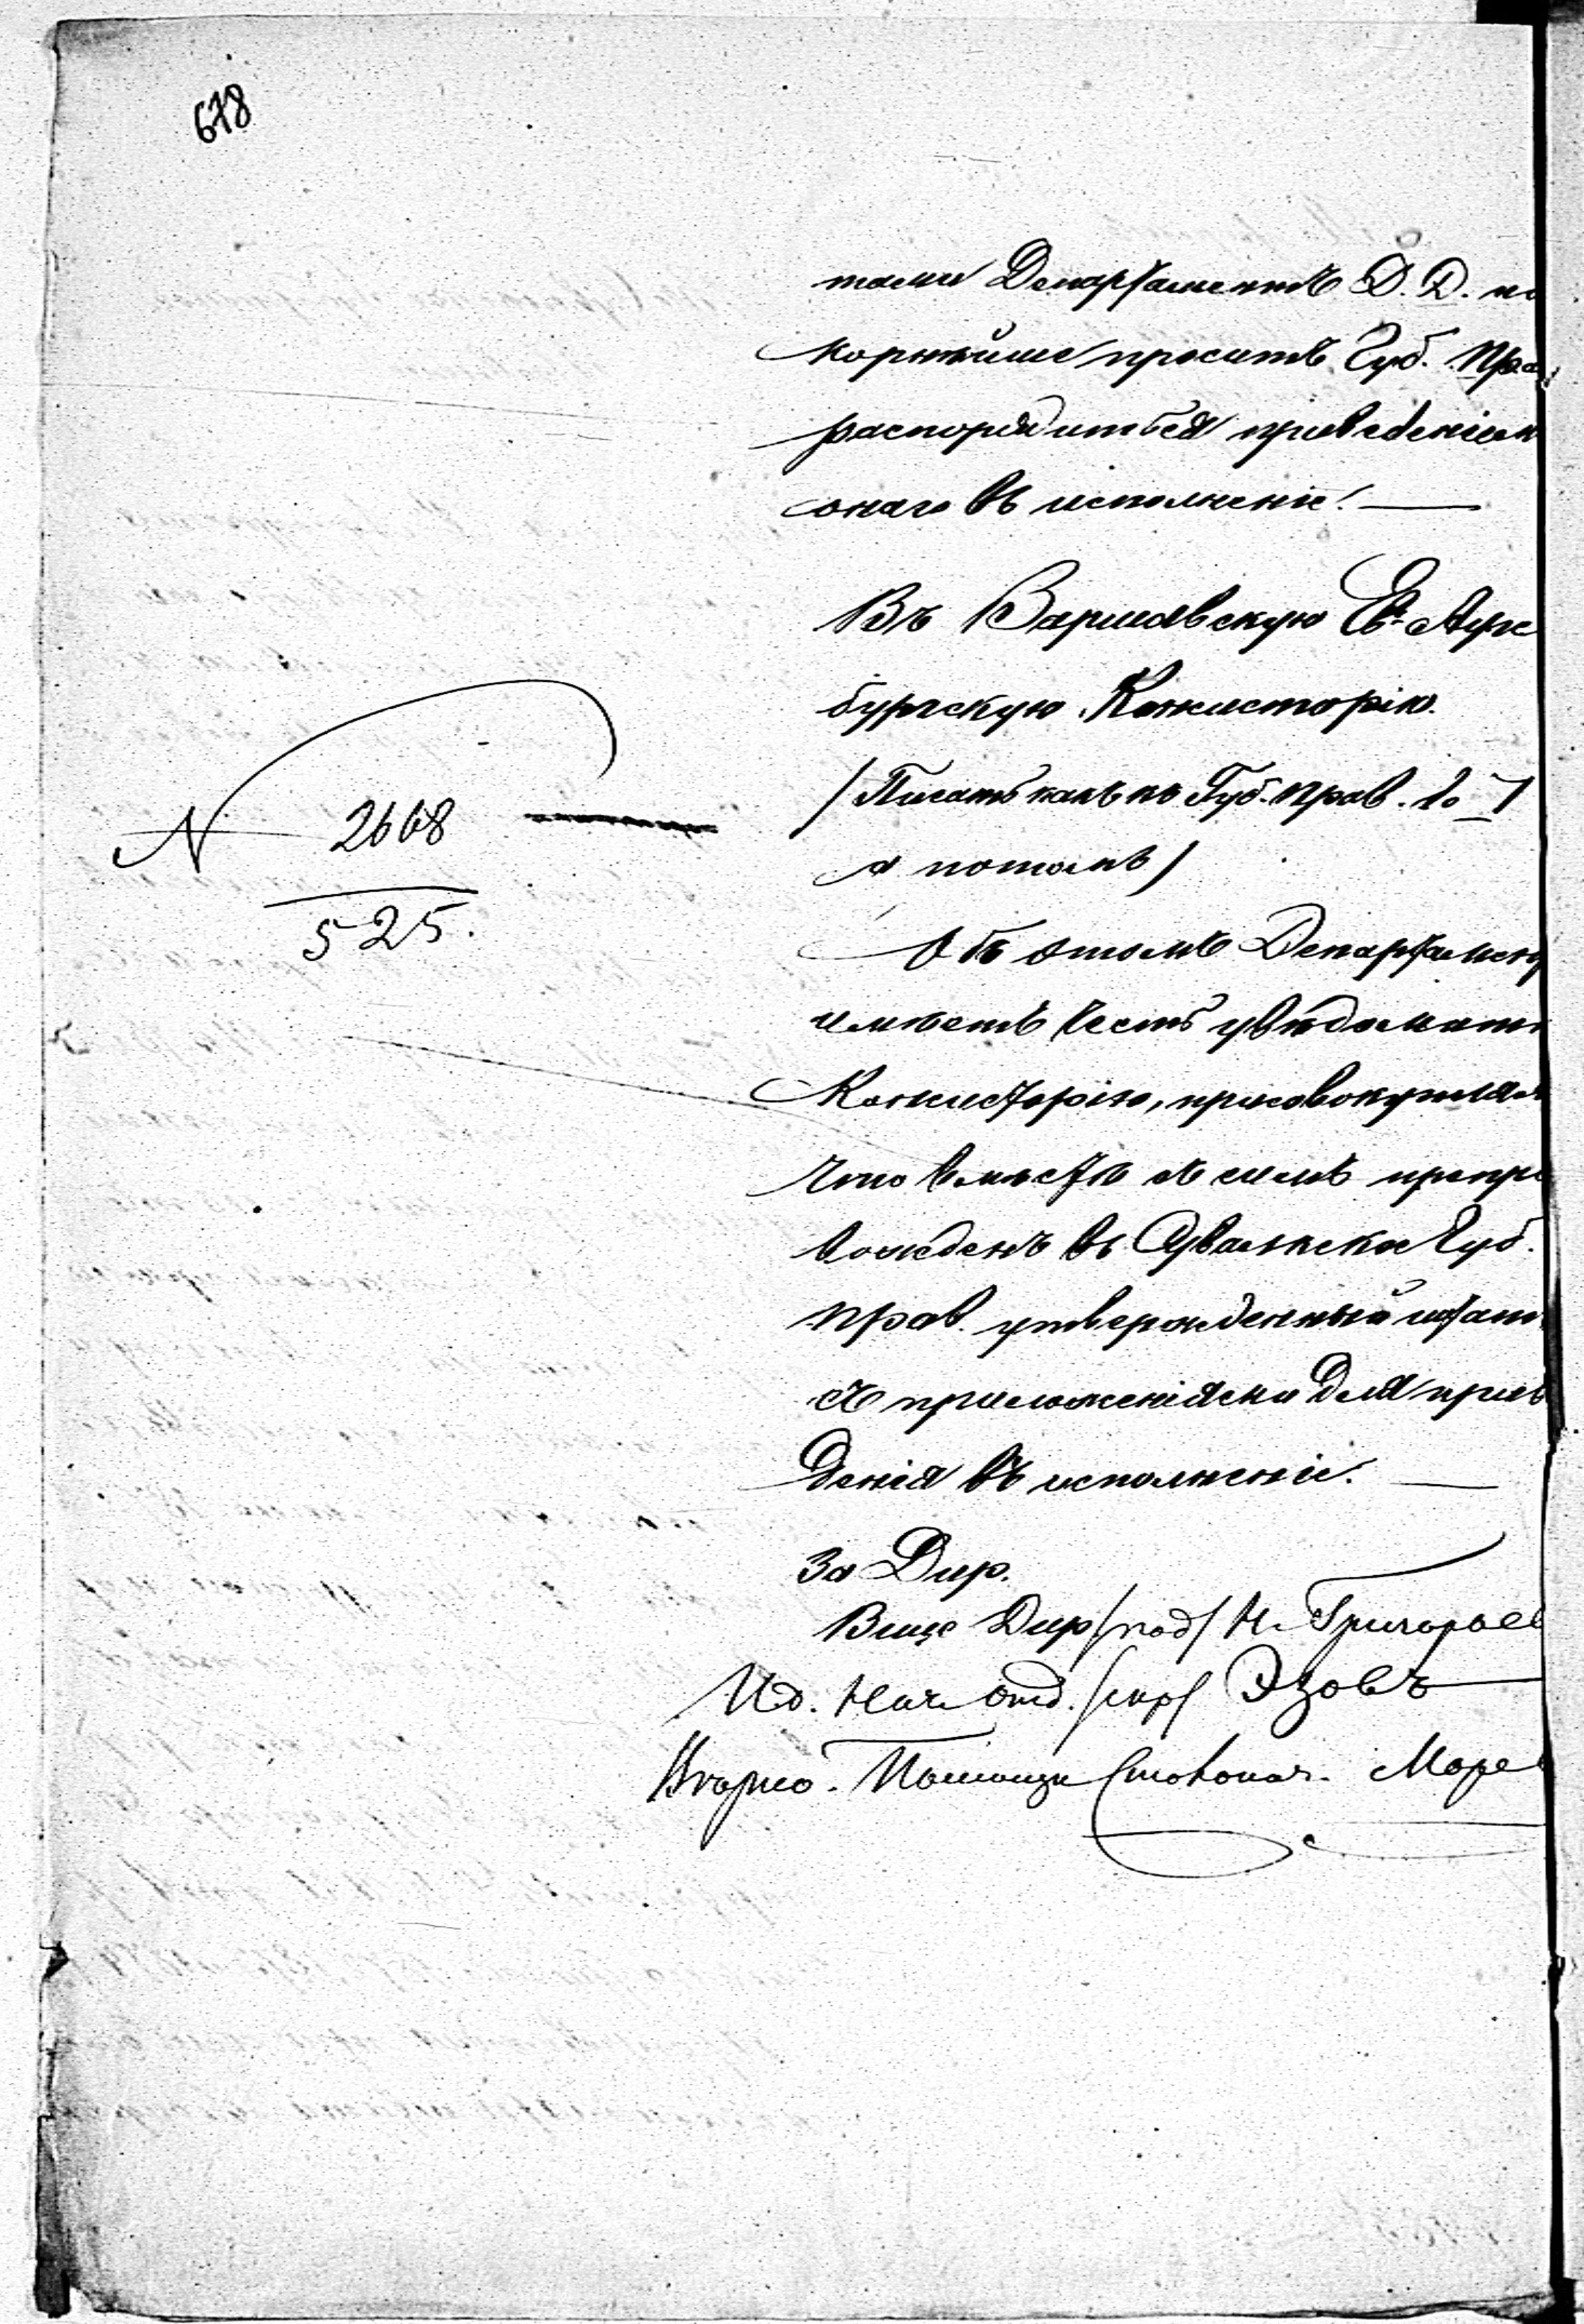 678
тами Департаментъ Д. Д. по
корнѣйше проситъ Губ. Прав
распорядиться приведеніем
онаго въ исполненіе. —
Въ Варшавскую Ев. Аугс
бургскую Консисторію.
/Писать какъ въ Губ. Прав. до —/
а потомъ/
N 2668
525.
Объ этомъ Департамен
имѣетъ честь увѣдомить
Консисторію, присовокупляя
что вмѣстѣ съ симъ препро
вожденъ въ Сувалкское Губ.
Прав. утвержденный штат
съ приложеніями для приве
денія въ исполненіе. —
За Дир.
Вице Дир. /под/ Н. Григорьев
Ид. Нач. Отд. /скр/ Эзовъ
Помощн. Столонач.